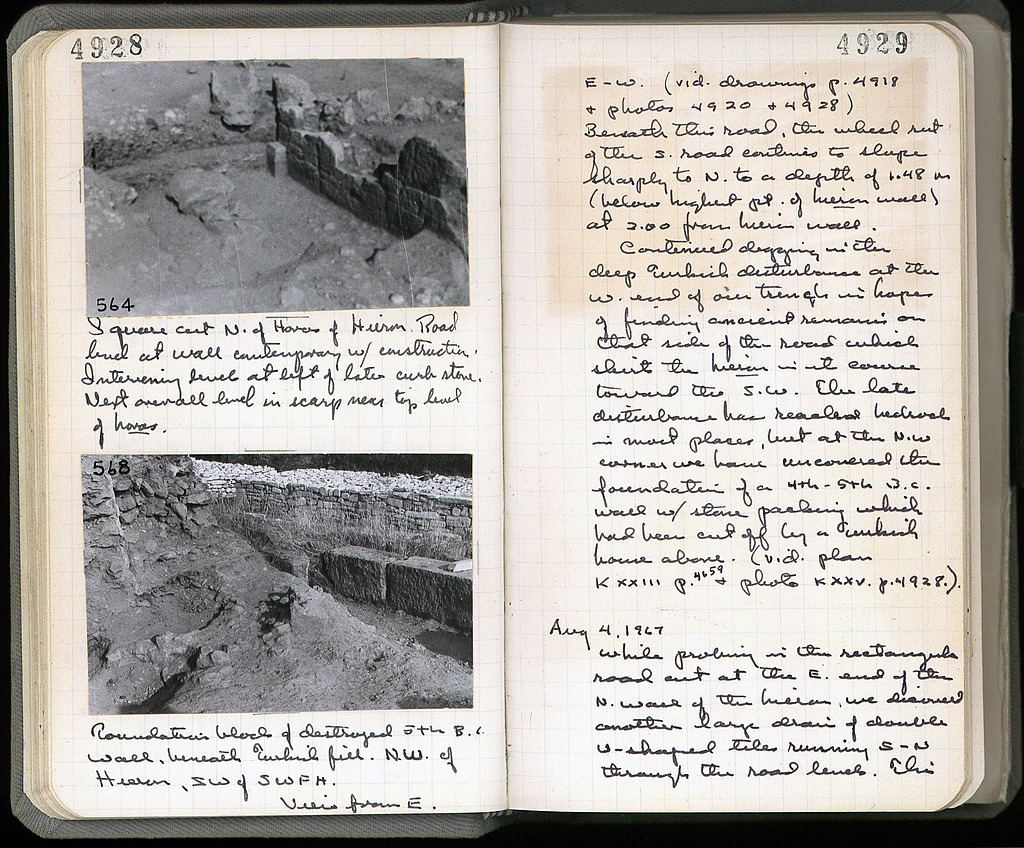 4928
564
Square cut N. of Horos of Hieron. Road
level at wall contemporary w/ construction.
Intervening level at left of later curb stone.
Next overall level in scarp near top level
of horos.
568
Foundation block of destroyed 5th B.C.
wall, beneath Turkish fill. N.W. of
Hieron, SW of SWFH.
View from E.
4929
E-W. (vid. drawings p. 4918
+ photos 4920 + 4928)
Beneath this road, the wheel rut
of the S. road continues to slope
sharply to N. to a depth of 1.48 m
(below highest pt. of hieron wall)
at 2.00 from hieron wall.
Continued digging in the
deep Turkish disturbance at the
W. end of our trench in hopes
of finding ancient remains on
that side of the road which
skirts the hieron in it course
toward the S.W. The late
disturbance has reached bedrock
in most places, but at the N.W
corner we have uncovered the
foundation of a 4th-5th B.C.
wall w/ stone packing which
had been cut off by a Turkish
house above. (vid. plan
KXXIII p. 4659 + photo KXXV. p. 4928.)
Aug 4, 1967
While probing in the rectangular
road cut at the E. end of the
N. wall of the hieron, we discovered
another large drain of double
U-shaped tiles running S-N
through the road levels. This